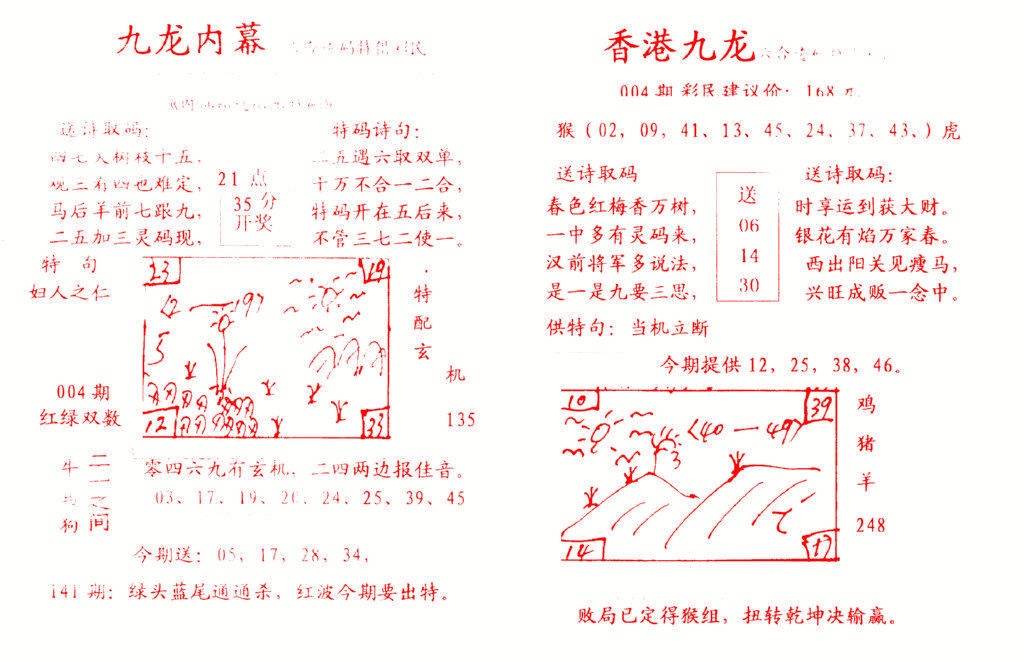 九龙内幕
送诗取码：
特码诗句：
观三有四也难定，
马后羊前七跟九，
二五加三灵码现，
21 点
35 分
开奖
二五遇六取双单，
千万不合一二合，
特码开在五后来，
不管三七二使一。
特 句
妇人之仁
23
19
12
33
特
配
玄
机
135
004 期
红绿双数
牛
狗
零四六九有玄机，二四两边报佳音。
03、17、19、20、24、25、39、45
今期送：05，17，28，34，
141 期：绿头蓝尾通通杀，红波今期要出特。
香港九龙
004 期 彩民建议价：168 元
猴（02，09，41、13、45、24、37、43、）虎
送诗取码
春色红梅香万树，
一中多有灵码来，
汉前将军多说法，
是一是九要三思，
送
06
14
30
送诗取码：
时享运到获大财。
银花有焰万家春。
西出阳关见瘦马，
兴旺成贩一念中。
供特句：当机立断
今期提供 12，25，38，46。
10
39
〈40 — 49〉
14
17
鸡
猪
羊
248
败局已定得猴组，扭转乾坤决输赢。